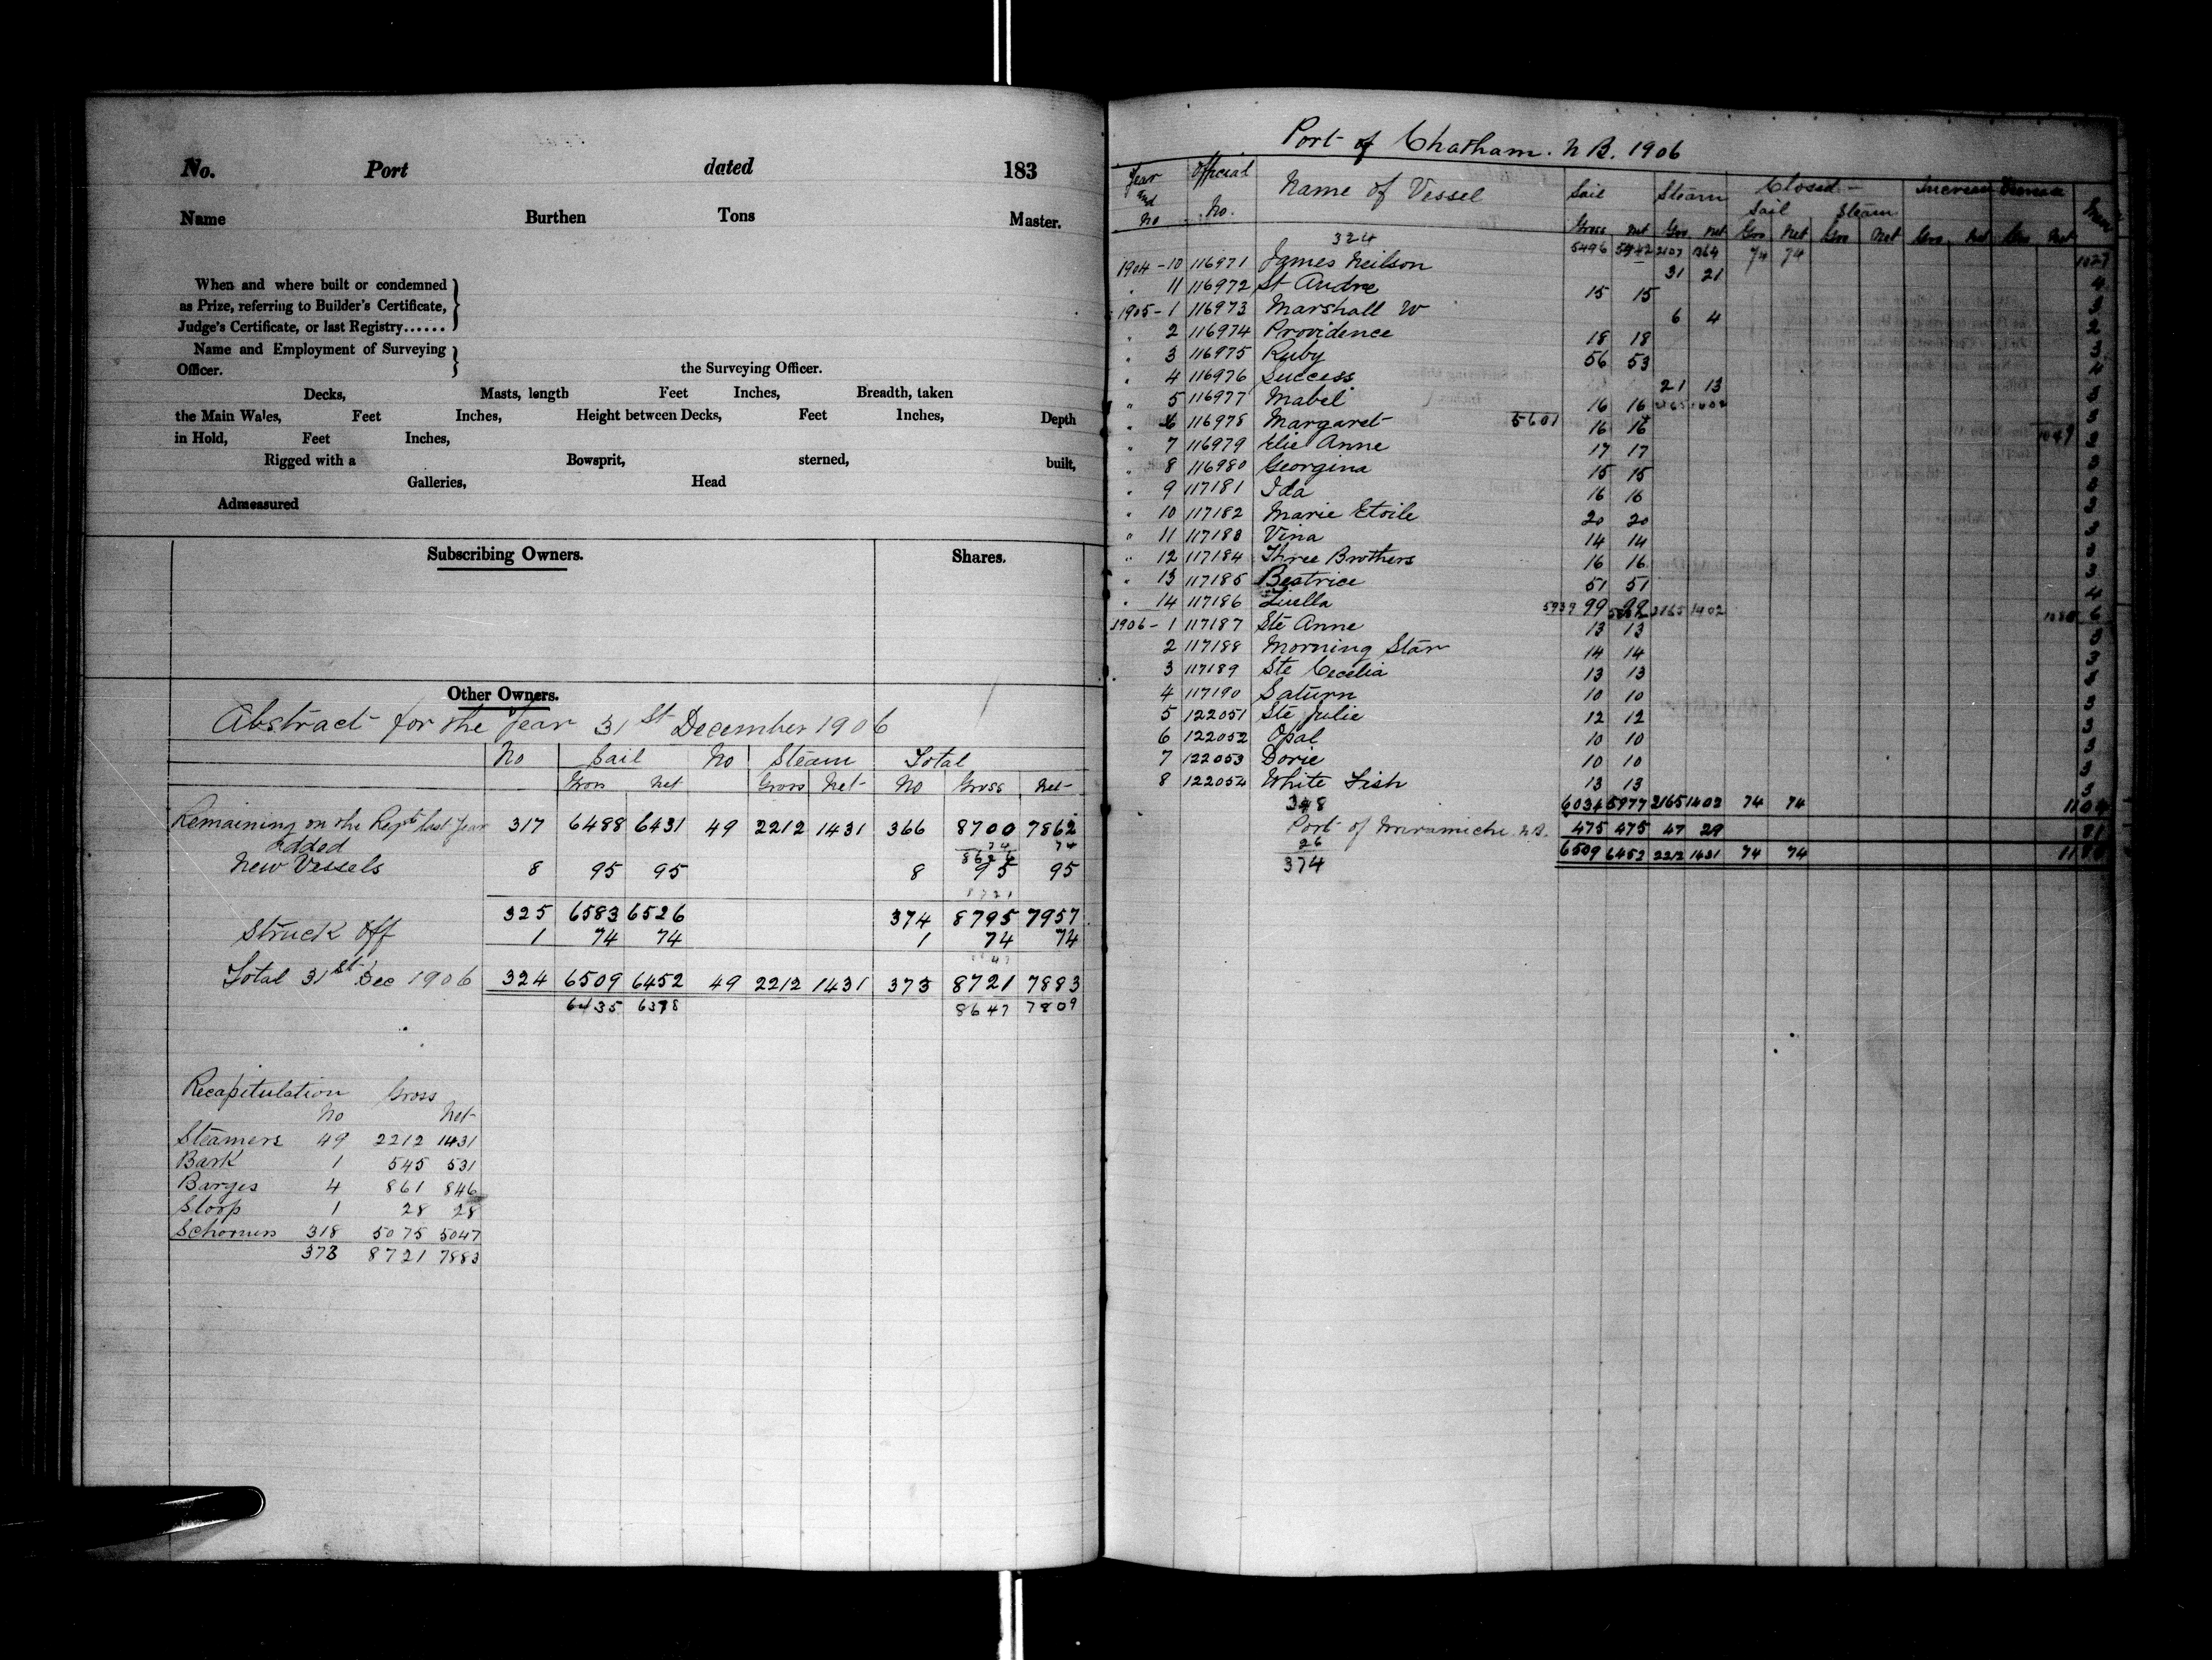 No. Port dated 183
Name Burthen Tons Master.
When and where built or condemned
as Prize, referring to Builder's Certificate,
Judge's Certificate, or last Registry......
Name and Employment of Surveying
Officer. the Surveying Officer.
Decks, Masts, length Feet Inches, Breadth, taken
the Main Wales, Feet Inches, Height between Decks, Feet Inches, Depth
in Hold, Feet Inches,
Rigged with a Bowsprit, sterned, built,
Galleries, Head
Admeasured
Subscribing Owners. Shares.
Other Owners.
Abstract for the Year 31st December 1906
No Sail No Steam Total
Gross Net Gross Net No Gross Net
Remaining on the Regstr last Year 317 6488 6431 49 2212 1431 366 8700 7862
added 74 74
8626
New Vessels 8 95 95 8 95 95
8721
325 6583 6526 374 8795 7957
Struck off 1 74 74 1 74 74
Total 31st Dec 1906 324 6509 6452 49 2212 1431 373 8721 7883
6435 6378 8647 7809
Recapitulation Gross
No Net
Steamers 49 2212 1431
Bark 1 545 531
Barges 4 861 846
Sloop 1 28 28
Schorners 318 5075 5047
373 8721 7883
Port of Chatham. N B. 1906
Year and No Official No. Name of Vessel Sail Steam Closed Sail Steam Increase Decrease
Gross Net Gro Net Gro Net Gro Net Gro Net Gro Net
324 5496 5442 2107 1364 74 74 1027
1904-10 116971 James Neilson 31 21 4
" 11 116972 St Andre 15 15 3
1905-1 116973 Marshall W 6 4 2
" 2 116974 Providence 18 18 3
" 3 116975 Ruby 56 53 4
" 4 116976 Success 21 13 3
" 5 116977 Mabel 16 16 2165 1402 3
" 6 116978 Margaret 5601 16 16 1049 3
" 7 116979 Elie Anne 17 17 3
" 8 116980 Georgina 15 15 3
" 9 117181 Ida 16 16 3
" 10 117182 Marie Etoile 20 20 3
" 11 117183 Vina 14 14 3
" 12 117184 Three Brothers 16 16 3
" 13 117185 Beatrice 51 51 4
" 14 117186 Luella 5939 99 99 2165 1402 6
1906-1 117187 Ste Anne 13 13 3
2 117188 Morning Star 14 14 3
3 117189 Ste Cecelia 13 13 3
4 117190 Saturn 10 10 3
5 122051 Ste Julie 12 12 3
6 122052 Opal 10 10 3
7 122053 Dorie 10 10 3
8 122054 White Fish 13 13 3
348 6034 5977 2165 1402 74 74 1104
Port of Miramichi N.B. 475 475 47 29 81
26 6509 6452 2212 1431 74 74
374